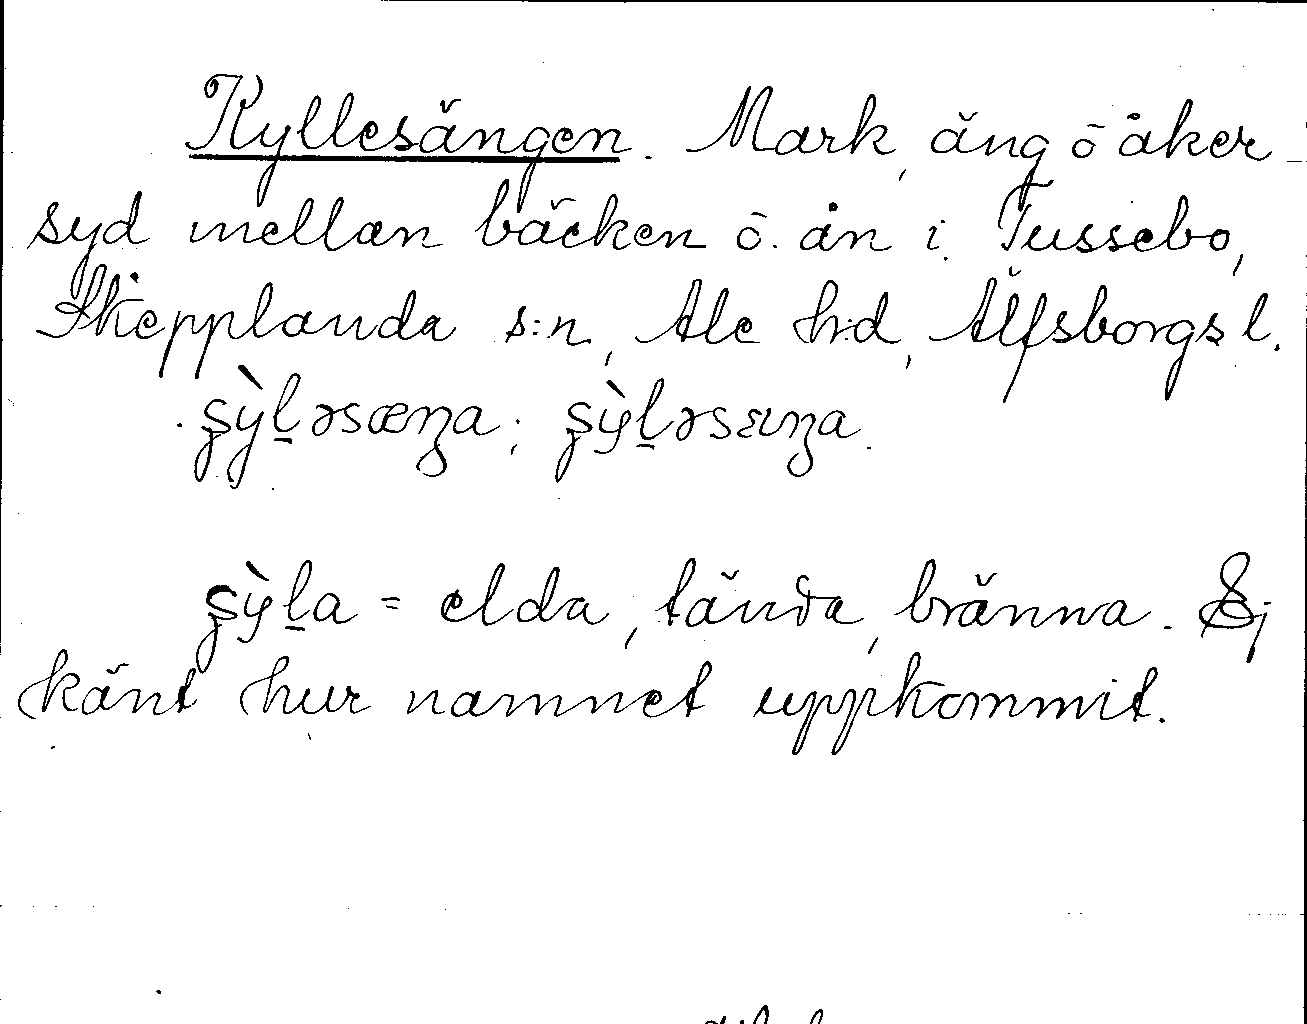 Kyllesängen. Mark, äng ō åker
syd mellan bäcken ō. ån i. Tussebo,
Skepplanda s:n, Ale h:d, Älfsborgs l.
elda, tända, bränna. Ej
känt hur namnet uppkommit.